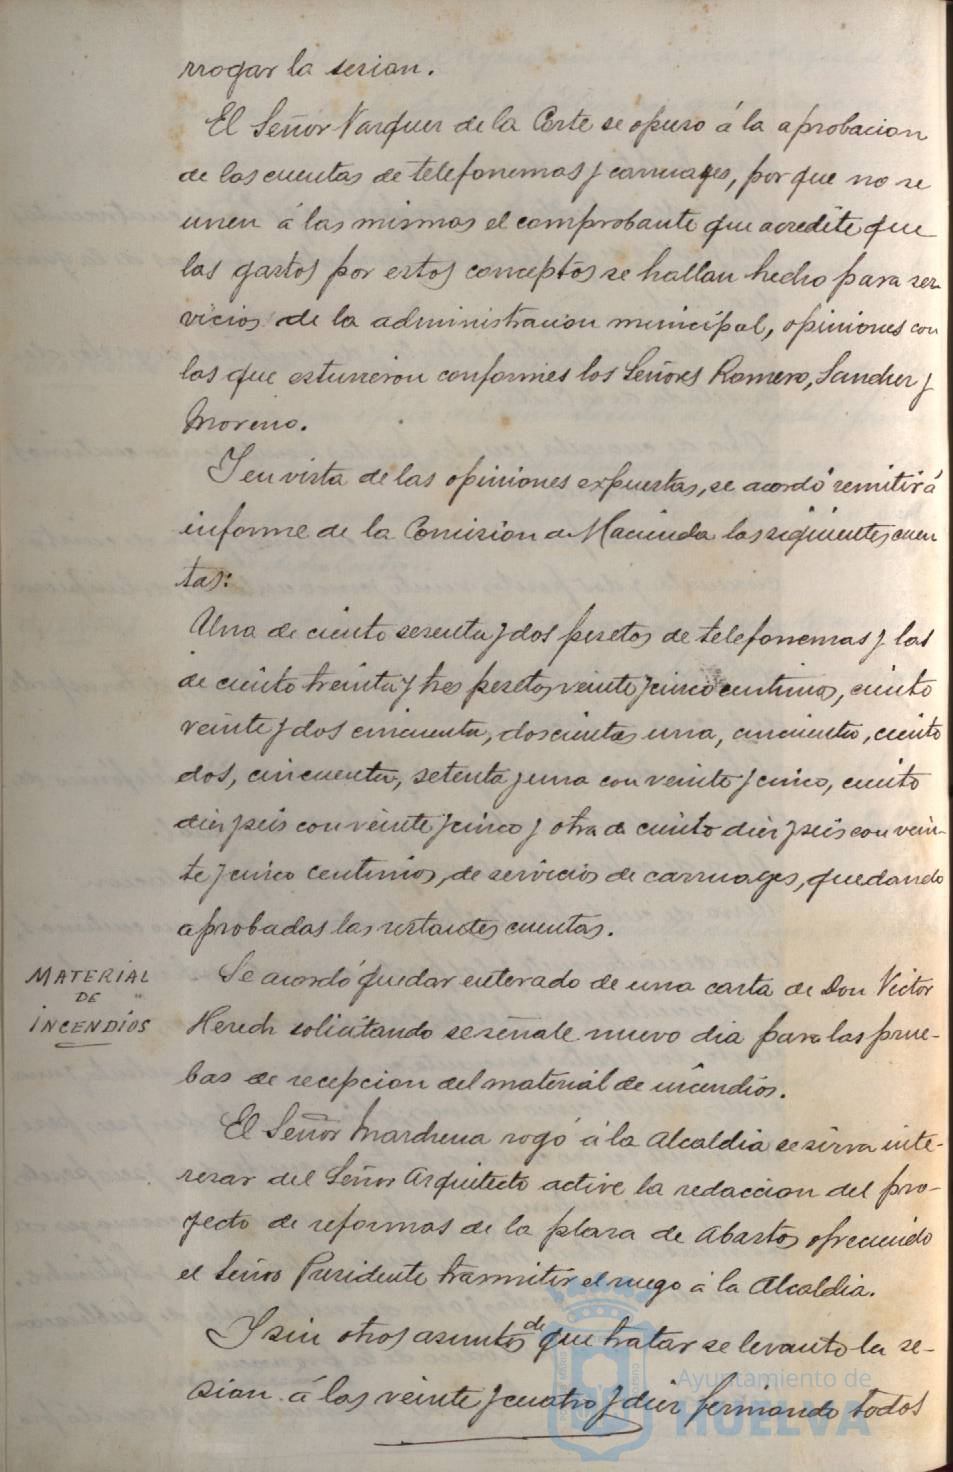 rrogar la sesion.
El Señor Vazquez de la Corte se opuso á la aprobacion
de las cuentas de telefonemas y carruages, por que no se
unen á las mismas el comprobante que acredite que
los gastos por estos conceptos se hallan hecho para ser-
vicios de la administracion municipal, opiniones con
las que estuvieron conformes los Señores Romero, Sanchez y
Moreno.
Y en vista de las opiniones expuestas, se acordó remitir á
informe de la Comision de Hacienda las siguientes cuen
tas:
Una de ciento sesenta y dos pesetas de telefonemas y las
de ciento treinta y tres pesetas veinte y cinco centimos, ciento
veinte y dos cincuenta, doscientas una, cincuenta, ciento
dos, cincuenta, setenta y una con veinte y cinco, ciento
diez y seis con veinte y cinco y otra de ciento diez y seis con vein-
te y cinco centimos, de servicios de carruages, quedando
aprobadas las restantes cuentas.
MATERIAL
DE
INCENDIOS
Se acordó quedar enterado de una carta de Don Victor
Herech solicitando se señale nuevo dia para las prue-
bas de recepcion del material de incendios.
El Señor Marchena rogó á la Alcaldia se sirva inte-
resar del Señor Arquitecto active la redaccion del pro-
yecto de reformas de la plaza de Abastos ofreciendo
el Señor Presidente trasmitir el ruego á la Alcaldia.
Y sin otros asuntos de que tratar se levanto la se-
sion á las veinte y cuatro y diez firmando todos
Ayuntamiento de
HUELVA